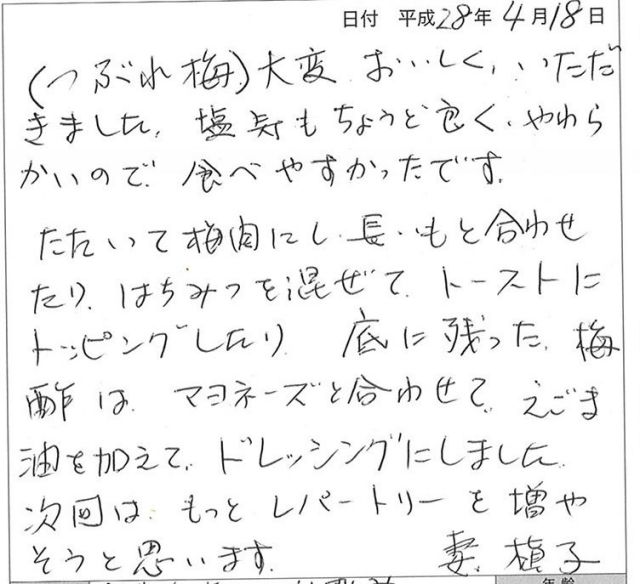 日付 平成28年4月18日
(つぶれ梅)大変 おいしく、いただ
きました。塩気もちょうど良く、やわら
かいので、食べやすかったです。
たたいて梅肉にし、長いもと合わせ
たり、はちみつを混ぜて、トーストに
トッピングしたり、底に残った、梅
酢は、マヨネーズと合わせて、えごま
油を加えて、ドレッシングにしました。
次回は、もっとレパートリーを増や
そうと思います。 妻 槙子
年齢